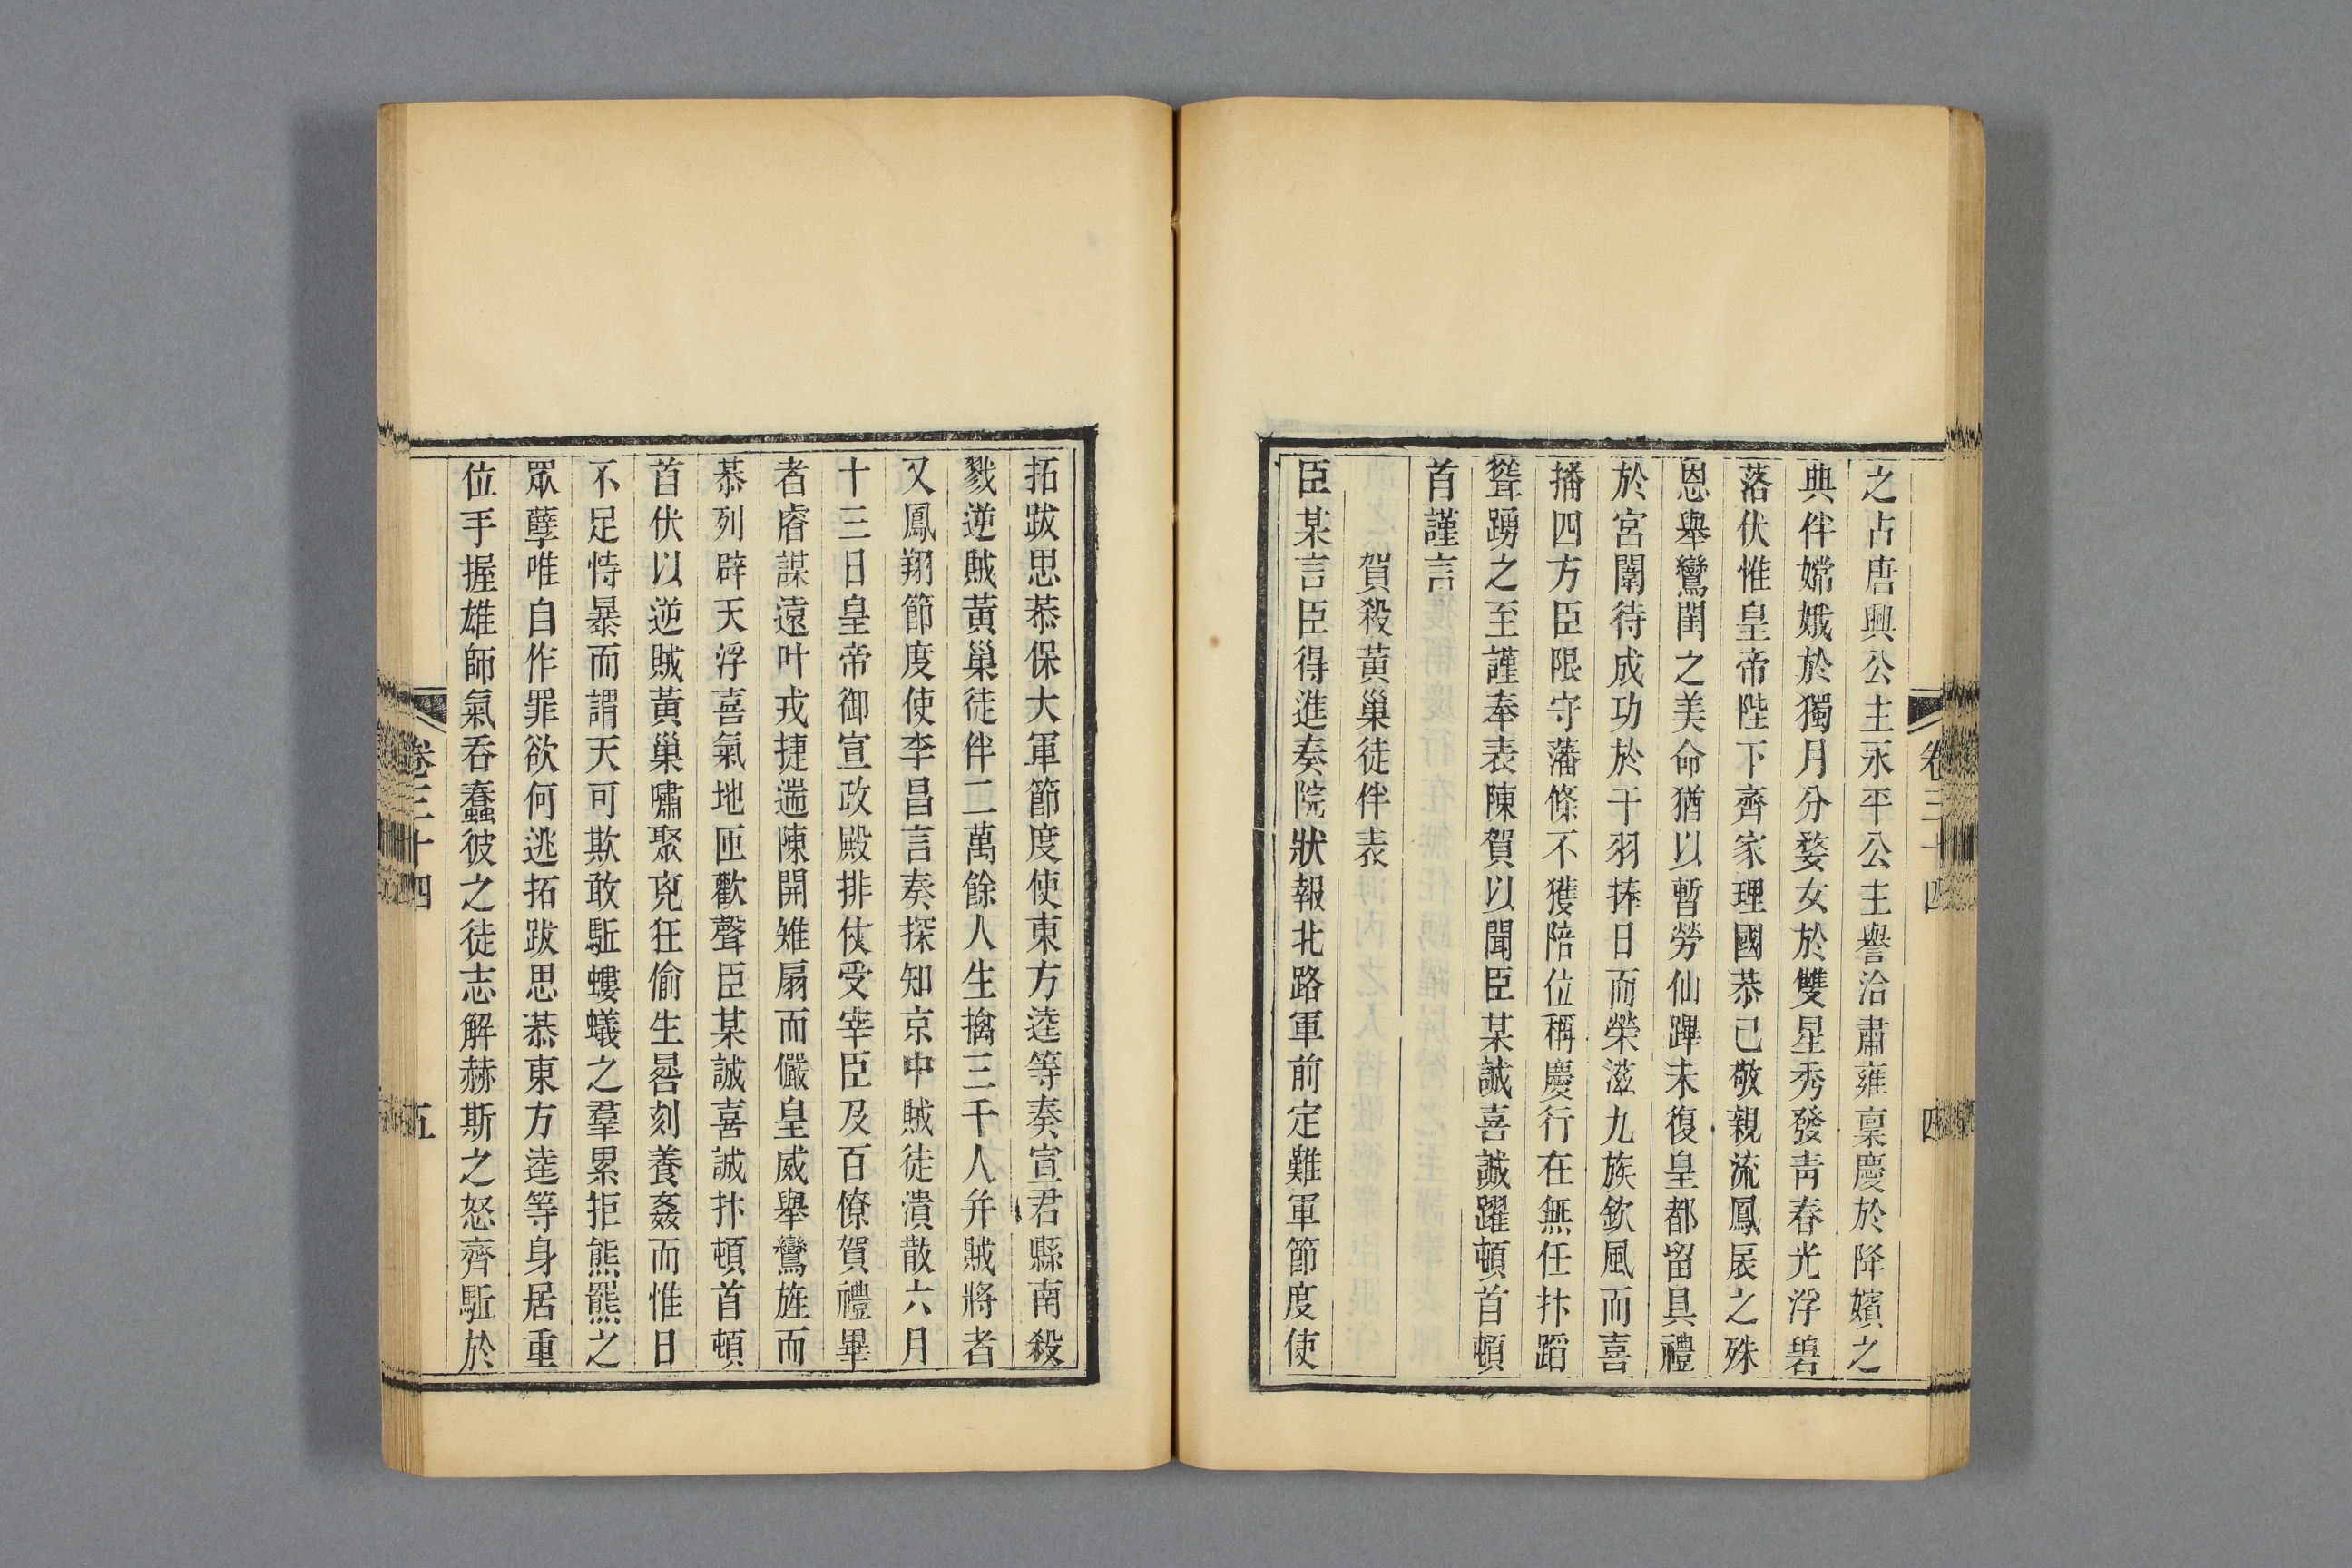 之占唐興公主永平公主譽洽肅雍稟慶於降嬪之
典伴嫦娥於獨月分婺女於雙星秀發靑春光浮碧
落伏惟皇帝陛下齊家理國恭己敬親流鳳扆之殊
恩舉鸞閨之美命猶以暫勞仙蹕未復皇都留具禮
於宮闈待成功於干羽捧日而榮滋九族欽風而喜
播四方臣限守藩條不獲陪位稱慶行在無任抃蹈
聳踴之至謹奉表陳賀以聞臣某誠喜誠躍頓首頓
首謹言
賀殺黃巢徒伴表
臣某言臣得進奏院狀報北路軍前定難軍節度使
卷三十四
四
拓跋思恭保大軍節度使東方逵等奏宣君縣南殺
戮逆賊黃巢徒伴二萬餘人生擒三千人幷賊將者
又鳳翔節度使李昌言奏探知京中賊徒潰散六月
十三日皇帝御宣政殿排仗受宰臣及百僚賀禮畢
者睿謀遠叶戎捷遄陳開雉扇而儼皇威舉鸞旌而
恭列辟天浮喜氣地匝歡聲臣某誠喜誠抃頓首頓
首伏以逆賊黃巢嘯聚兇狂偷生晷刻養姦而惟日
不足恃暴而謂天可欺敢駈螻蟻之羣累拒熊羆之
眾孽唯自作罪欲何逃拓跋思恭東方逵等身居重
位手握雄師氣吞蠢彼之徒志解赫斯之怒齊駈於
卷三十四
五